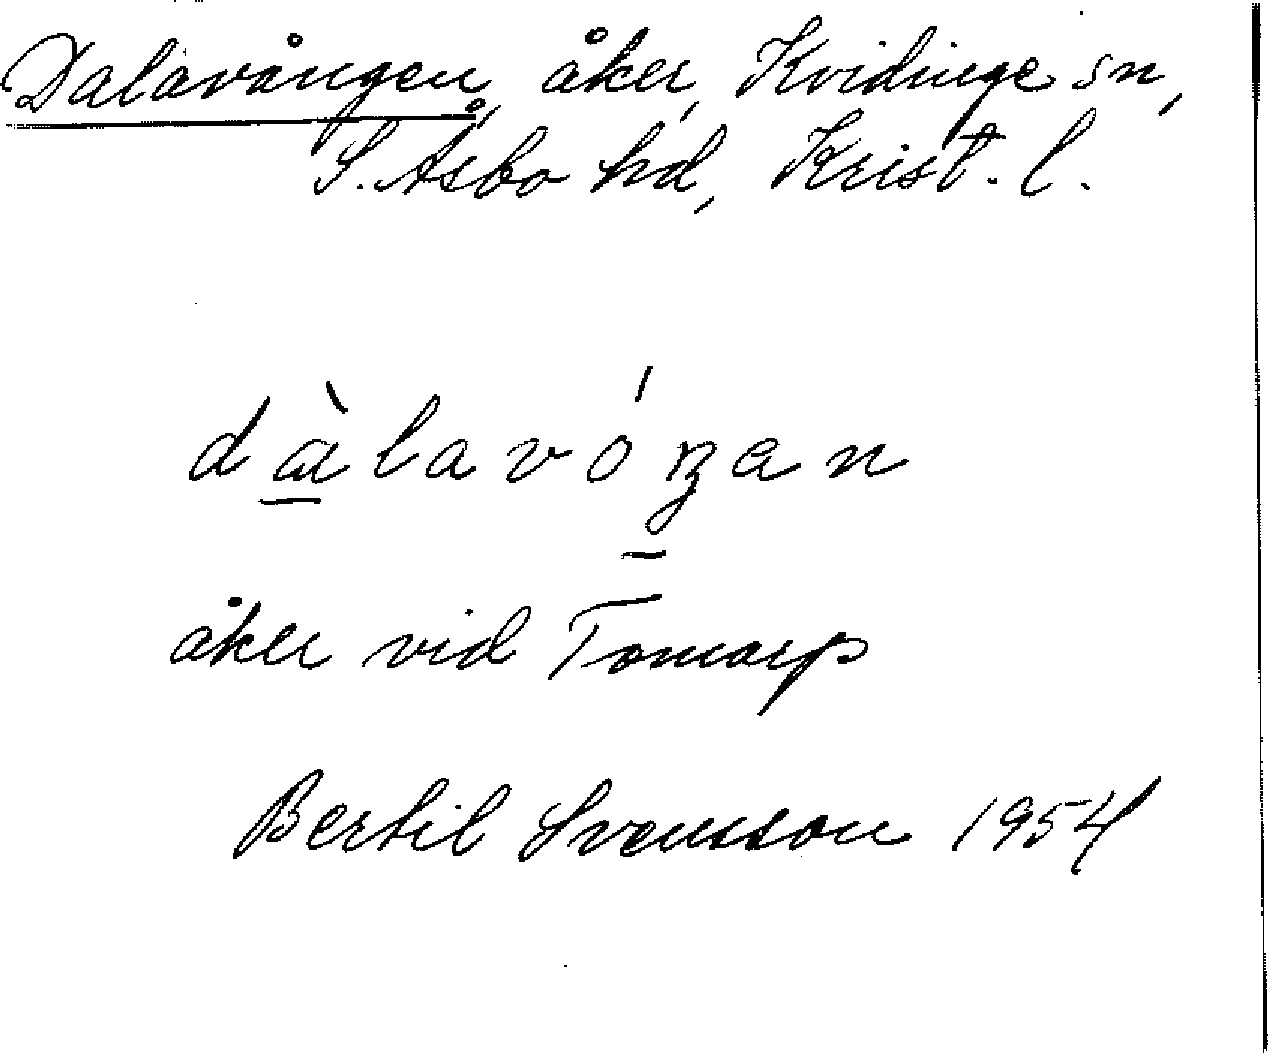 Dalavången, åker, Kvidinge sn,
S. Åsbo hd, Krist. l.
dàlavóŋan
åker vid Tomarp
Bertil Svensson 1954